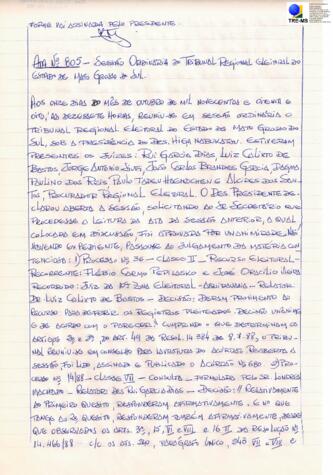 TRE-MS
FORME VAI ASSINADA PELO PRESIDENTE.
ATA Nº 805 – SESSÃO ORDINÁRIA DO TRIBUNAL REGIONAL ELEITORAL DO
ESTADO DE MATO GROSSO DO SUL.
AOS ONZE DIAS DO MÊS DE OUTUBRO DE MIL NOVECENTOS E OITENTA E
OITO, ÀS DEZESSETE HORAS, REUNIU-SE EM SESSÃO ORDINÁRIA O
TRIBUNAL REGIONAL ELEITORAL DO ESTADO DE MATO GROSSO DO
SUL, SOB A PRESIDÊNCIA DO DES. HIGA NABUKATSU. ESTIVERAM
PRESENTES OS JUÍZES: RUI GARCIA DIAS, LUIZ CALIXTO DE
BASTOS, JORGE ANTONIO, JOSÉ CARLOS BRANDES GARCIA, DAGMA
PAULINO DOS REIS, PAULO TADEU HAENDCHEN E ALCIDES DOS SAN-
TOS, PROCURADOR REGIONAL ELEITORAL. O DES. PRESIDENTE DE-
CLAROU ABERTA A SESSÃO, SOLICITANDO AO SR. SECRETÁRIO QUE
PROCEDESSE A LEITURA DA ATA DA SESSÃO ANTERIOR, A QUAL,
COLOCADA EM DISCUSSÃO, FOI APROVADA POR UNANIMIDADE. NÃO
HAVENDO EXPEDIENTE, PASSOU-SE AO JULGAMENTO DAS MATÉRIAS CON-
TENCIOSAS: 1) PROCESSO Nº 36 – CLASSE II – RECURSO ELEITORAL –
RECORRENTE: E JOSÉ
RECORRIDO: JUIZ DA ZONA ELEITORAL – – RELATOR:
DR. LUIZ CALIXTO DE BASTOS – DECISÃO: DERAM PROVIMENTO AO
RECURSO PARA DEFERIR OS REGISTROS PLEITEADOS. DECISÃO UNÂNIME
E DE ACORDO COM O PARECER. CUMPRINDO O QUE DETERMINAM OS
ARTIGOS E DO ART. 49 DA RESOL. 14.384 DE 8.7.88, O TRIBU-
NAL REUNIU-SE EM CONSELHO PARA LAVRATURA DO ACÓRDÃO. REABERTA A
SESSÃO FOI LIDO, ASSINADO E PUBLICADO O ACÓRDÃO Nº 680. 2) PRO-
CESSO Nº 14/88 – CLASSE VII – CONSULTA – FORMULADA PELO SR. LONDRES
MACHADO – RELATOR: DES. RUI GARCIA DIAS – DECISÃO: RELATIVAMENTE
AO PRIMEIRO QUESITO, RESPONDERAM AFIRMATIVAMENTE. E NO QUE
TANGE AO 2º QUESITO, RESPONDERAM TAMBÉM AFIRMATIVAMENTE, DESDE
QUE OBSERVADOS OS ARTS. 3º, 15, VI E VII, E 16 II DA RESOLUÇÃO Nº
14.466/88 C/C OS ARTS. 240, PARÁGRAFO ÚNICO, 243 VII E VIII E